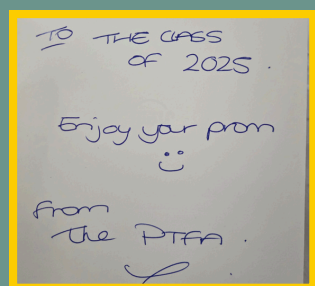 TO THE CLASS
OF 2025.
Enjoy your prom
from
the PTFA.